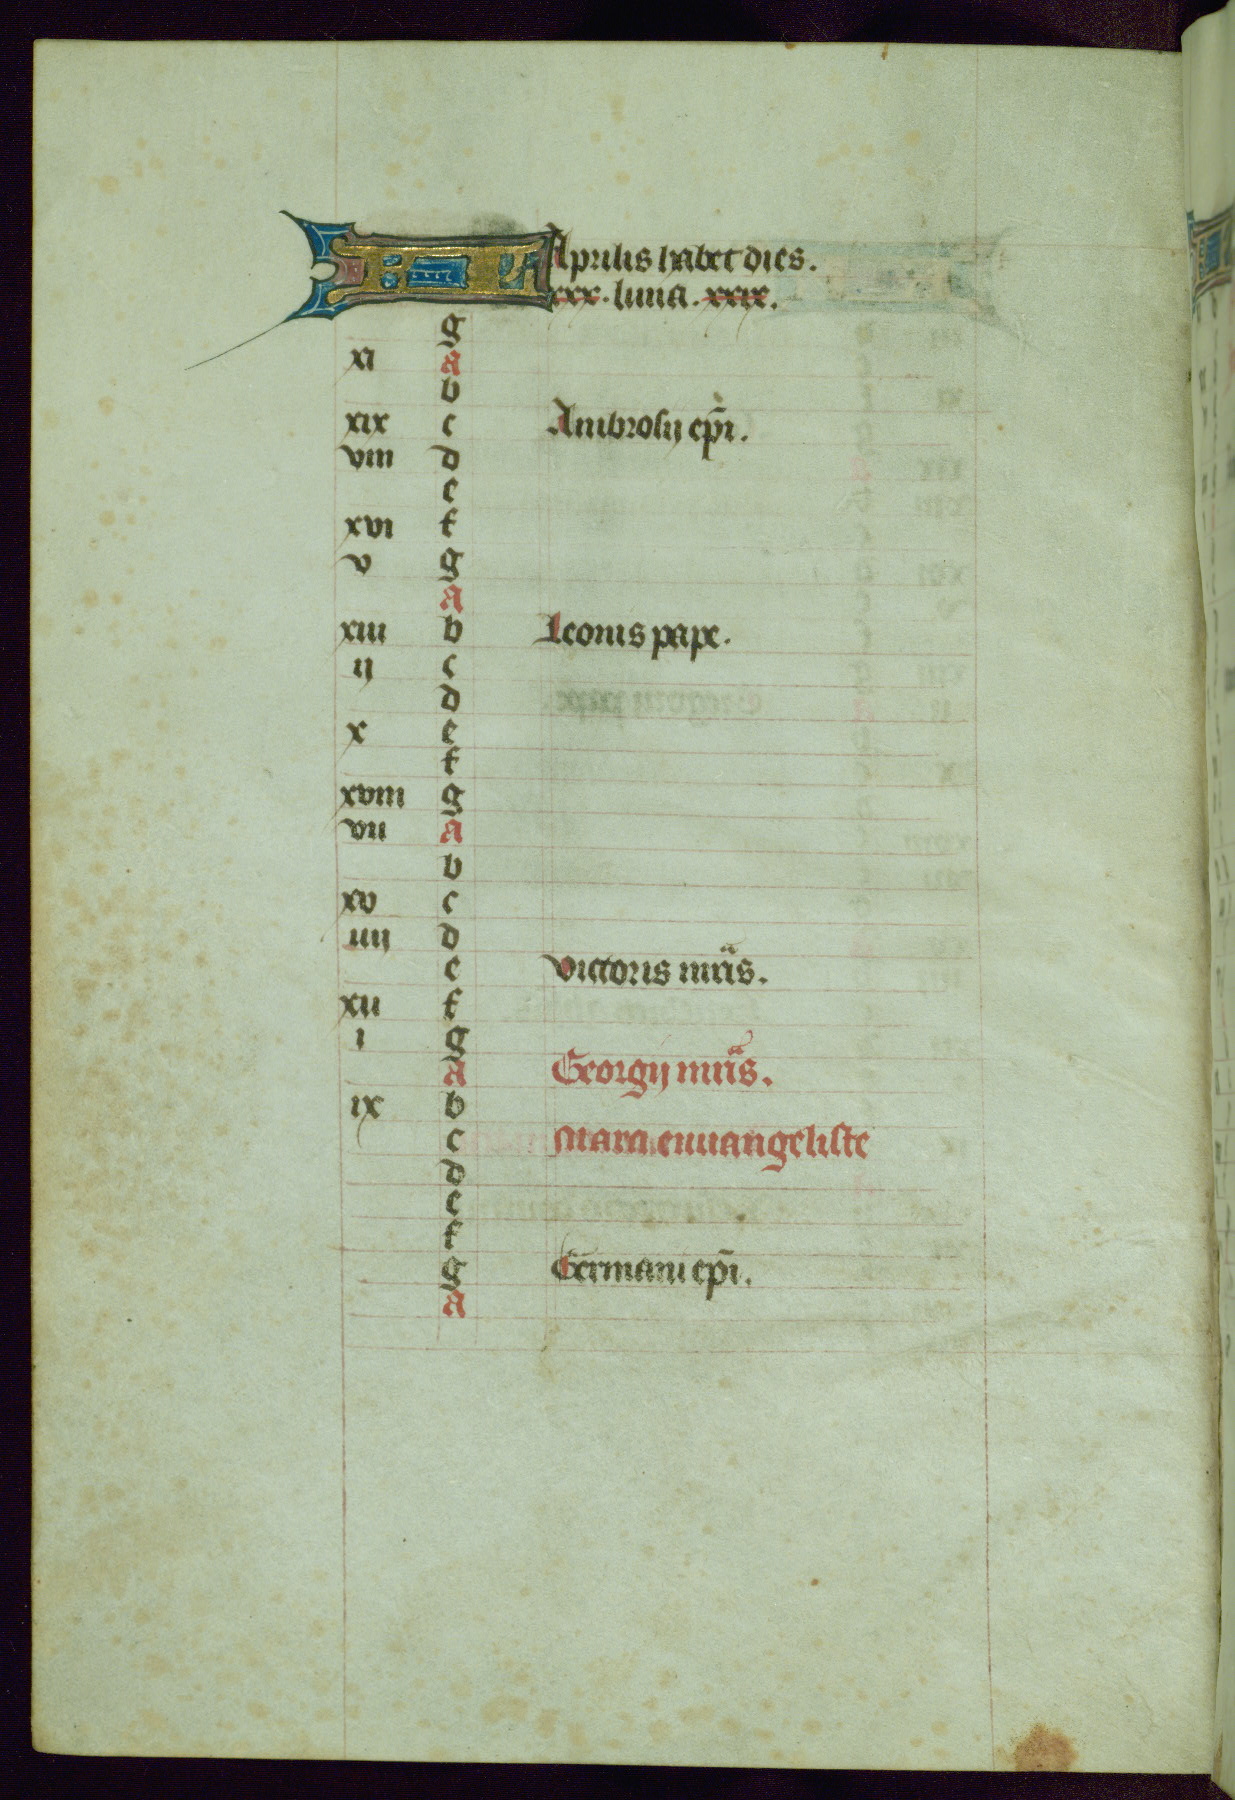 KL Aprilis habet dies.
xxx. luna. xxix.
g
xi a
b
xix c Ambrosij ep̄i.
viii d
e
xvi f
v g
a
xiii b Leonis pape.
ij c
d
x e
f
xviii g
vii a
b
xv c
iiij d
e Victoris mr̄is.
xii f
i g
a Georgij mr̄is.
ix b
c Marci euuangeliste
d
e
f
g Germani ep̄i.
a